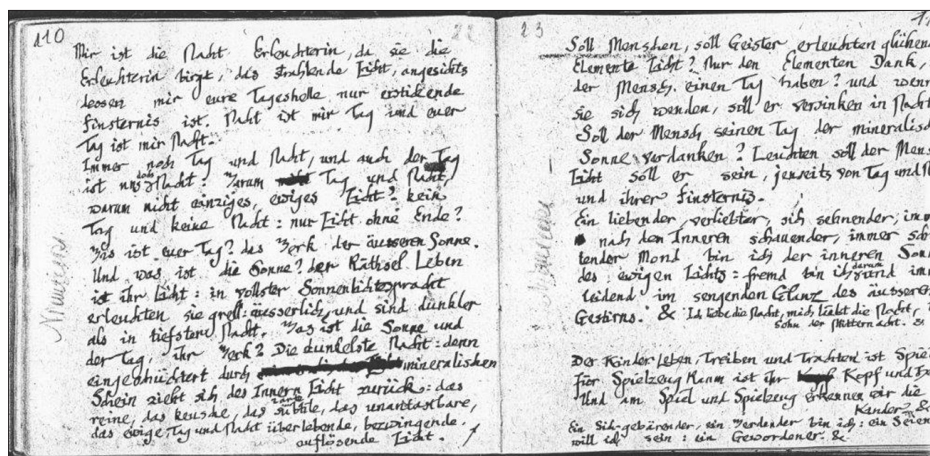 110
22
Mir ist die Nacht Erleuchterin, da sie die
Erleuchterin birgt, das strahlende Licht, angesichts
dessen mir eure Tageshelle nur erstickende
Finsternis ist. Nacht ist mir Tag und euer
Tag ist mir Nacht.
Immer noch Tag und Nacht, und auch der Tag
ist Nacht: Warum Tag und Nacht,
warum nicht einziges, ewiges Licht? kein
Tag und keine Nacht: nur Licht ohne Ende?
Was ist euer Tag? das Werk der äusseren Sonne.
Und was ist die Sonne? der Räthsel Leben
ist ihr Licht: in vollster Sonnenlichtespracht
erleuchten sie grell: äusserlich, und sind dunkler
als in tiefster Nacht. Was ist die Sonne und
der Tag, ihr Werk? Die dunkelste Nacht: denn
eingeschüchtert durch mineralischen
Schein zieht sich des Innern Licht zurück: das
reine, das keusche, das subtile, das unantastbare,
das ewige, Tag und Nacht überlebende, bezwingende,
auflösende Licht.
23
Soll Menschen, soll Geister erleuchten glühen
Elemente Licht? Nur den Elementen Dank,
der Mensch einen Tag haben? und wenn
sie sich wenden, soll er versinken in Nacht
Soll der Mensch seinen Tag der mineralisch
Sonne verdanken? Leuchten soll der Mens
Licht soll er sein, jenseits von Tag und N
und ihrer Finsternis.
Ein liebender, verliebter, sich sehnender, imm
nach den Inneren schauender, immer
tender Mond bin ich der inneren Sonn
des ewigen Lichts: fremd bin ich darum und imm
leidend im sengenden Glanz des äussere
Gestirns. & Ich liebe die Nacht, mich liebt die Nacht,
Sohn der Mitternacht. &
Der Kinder Leben, Treiben und Trachten ist Spiel
Für Spielzeug kaum ist ihr Kopf und
Und am Spiel und Spielzeug erkennen wir die
Kinder. &
Ein Sich-gebärender, ein Werdender bin ich: ein Seien
will ich sein: ein Gewordener. &